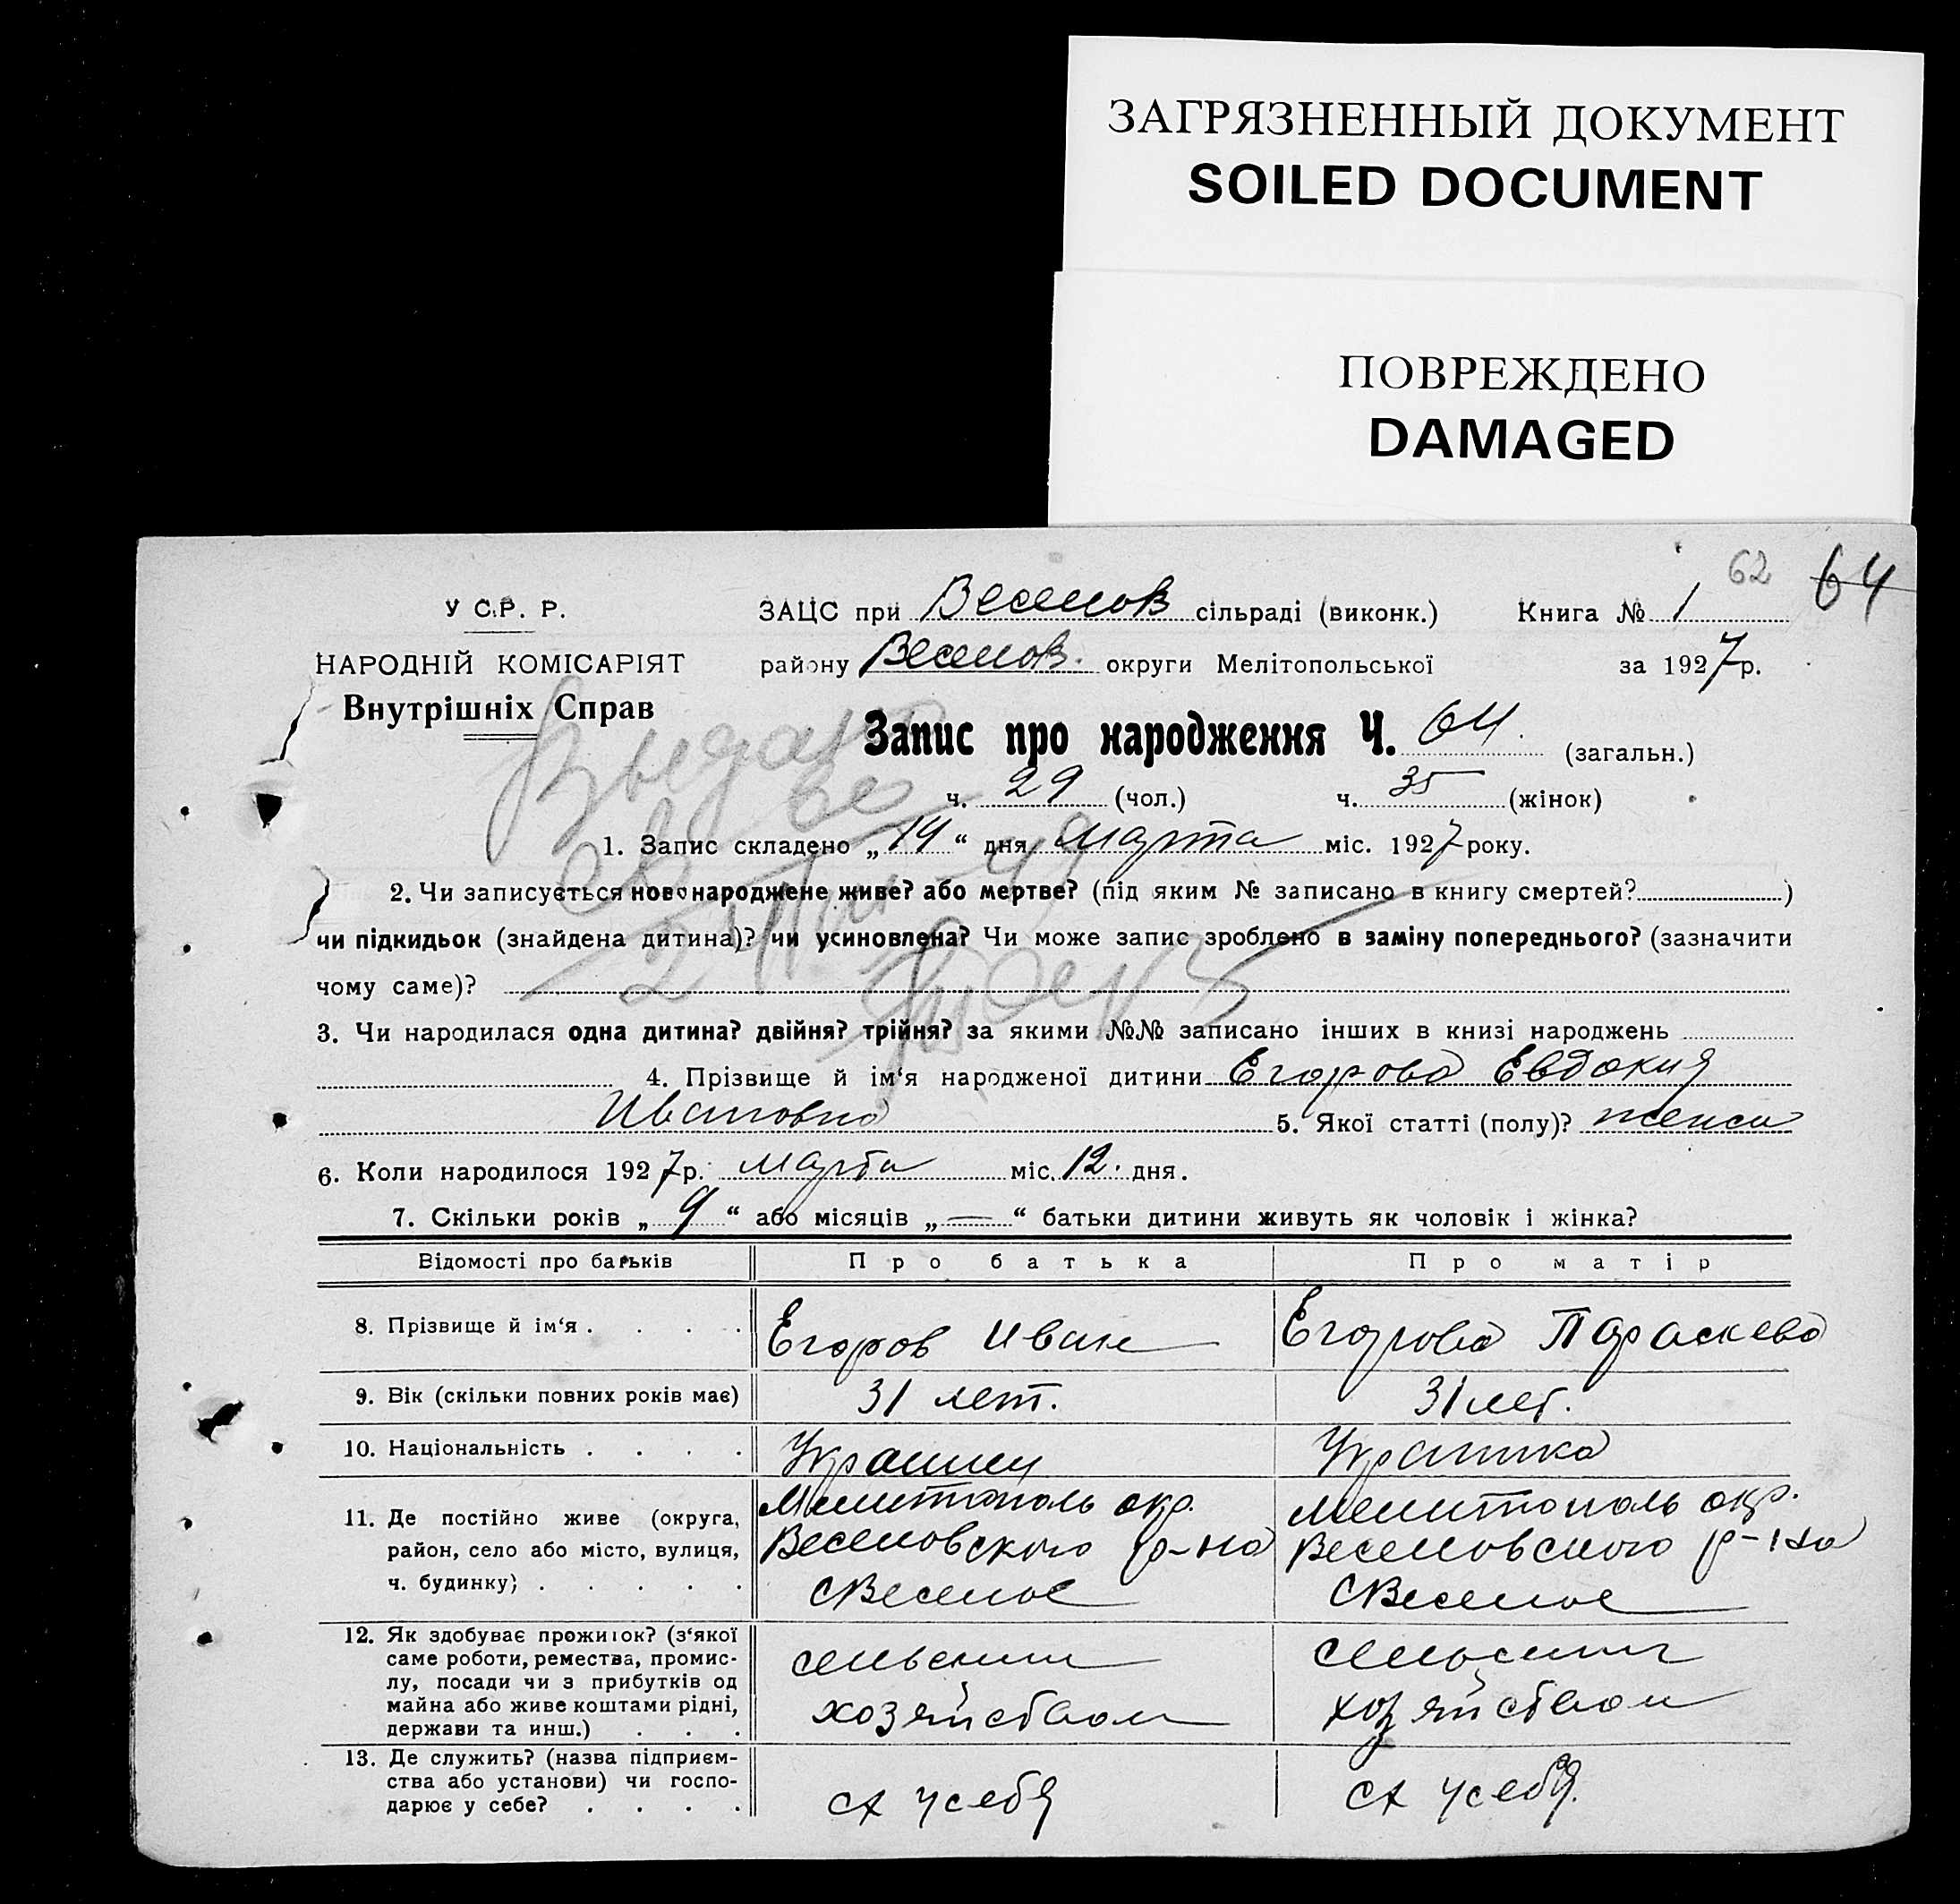 ЗАГРЯЗНЕННЫЙ ДОКУМЕНТ
SOILED DOCUMENT
ПОВРЕЖДЕНО
DAMAGED
62 64
У С.Р. Р. ЗАЦС при Веселов сільраді (виконк.) Книга № 1
НАРОДНІЙ КОМІСАРІЯТ району Веселов. округи Мелітопольської за 1927 р.
Внутрішніх Справ
Запис про народження Ч. 64. (загальн.)
ч. 29 (чол.) ч. 35 (жінок)
Выдано
1. Запис складено „14“ дня марта міс. 1927 року.
2. Чи записується новонароджене живе? або мертве? (під яким № записано в книгу смертей? )
чи підкидьок (знайдена дитина)? чи усиновлена? Чи може запис зроблено в заміну попереднього? (зазначити
чому саме)?
3. Чи народилася одна дитина? двійня? трійня? за якими №№ записано інших в книзі народжень
4. Прізвище й ім‘я народженої дитини Егорова Евдокия
Ивановна 5. Якої статті (полу)? женск
6. Коли народилося 1927 р. марта міс. 12. дня.
7. Скільки років „9“ або місяців „—“ батьки дитини живуть як чоловік і жінка?
Відомості про батьків Про батька Про матір
8. Прізвище й ім‘я . . . . Егоров Иван Егорова Параскева
9. Вік (скільки повних років має) 31 лет. 31 лет.
10. Національність . . . . Украинец Украинка
11. Де постійно живе (округа, Мелитополь окр. Мелитополь окр.
район, село або місто, вулиця, Веселовского р-на Веселовского р-на
ч. будинку) . . . . . с Веселое с Веселое
12. Як здобуває прожиток? (з‘якої
саме роботи, ремества, промис- сельским сельским
лу, посади чи з прибутків од
майна або живе коштами рідні, хозяйством хозяйством
держави та инш.) . . .
13. Де служить? (назва підприєм-
ства або установи) чи госпо- сх у себя сх у себя.
дарює у себе? . . . .